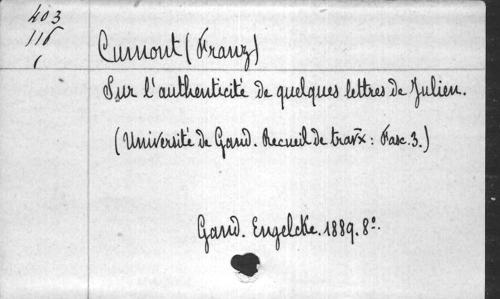 403
116
6
Cumont (Franz)
Sur l'authenticité de quelques lettres de Julien.
(Université de Gand. Recueil de trav̄x: Fasc. 3.)
Gand. Engelcke. 1889. 8º.